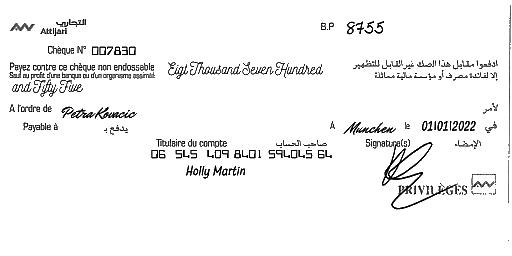 التجاري
Attijari
B.P 8755
Chèque N° 007830
Payez contre ce chèque non endossable
Sauf au profit d'une banque ou d'un organisme assimilé
Eigt Thousand Seven Hundred
and Fifty Five
ادفعوا مقابل هذا الصك غير القابل للتظهير
إلا لفائدة مصرف أو مؤسسة مالية مماثلة
A l'ordre de Petra Kovacic لأمر
Payable à يدفع بـ
A Munchen le 01/01/2022 في
Titulaire du compte صاحب الحساب
Signature(s) الإمضاء
06 545 409 8401 594045 64
Holly Martin
PRIVILÈGES